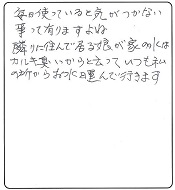 毎日使っていると気がつかない
事って有りますよね
隣りに住んで居る娘が家の水は
カルキ臭いからと云っていつも私
の所からお水運んで行きます